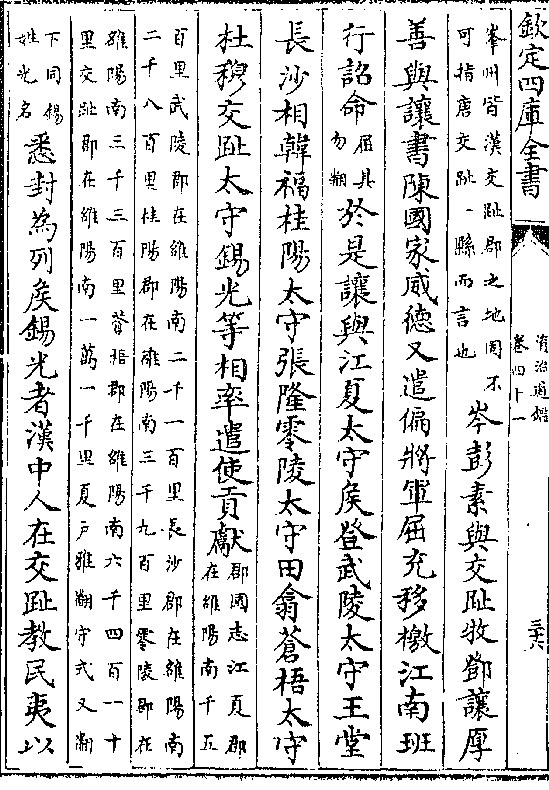 欽定四庫全書
資治通鑑
卷四十一
三十六
峯州皆漢交趾郡之地固不
可指唐交趾一縣而言也
岑彭素與交趾牧鄧讓厚
善與讓書陳國家威德又遣偏將軍屈充移檄江南班
行詔命
屈其
勿翻
於是讓與江夏太守侯登武陵太守王堂
長沙相韓福桂陽太守張隆零陵太守田翕蒼梧太守
杜穆交趾太守錫光等相率遣使貢獻
郡國志江夏郡
在雒陽南千五
百里武陵郡在雒陽南二千一百里長沙郡在雒陽南
二千八百里桂陽郡在雒陽南三千九百里零陵郡在
雒陽南三千三百里蒼梧郡在雒陽南六千四百一十
里交趾郡在雒陽南一萬一千里夏戶雅翻守式又翻
下同錫
姓光名
悉封為列侯錫光者漢中人在交趾教民夷以